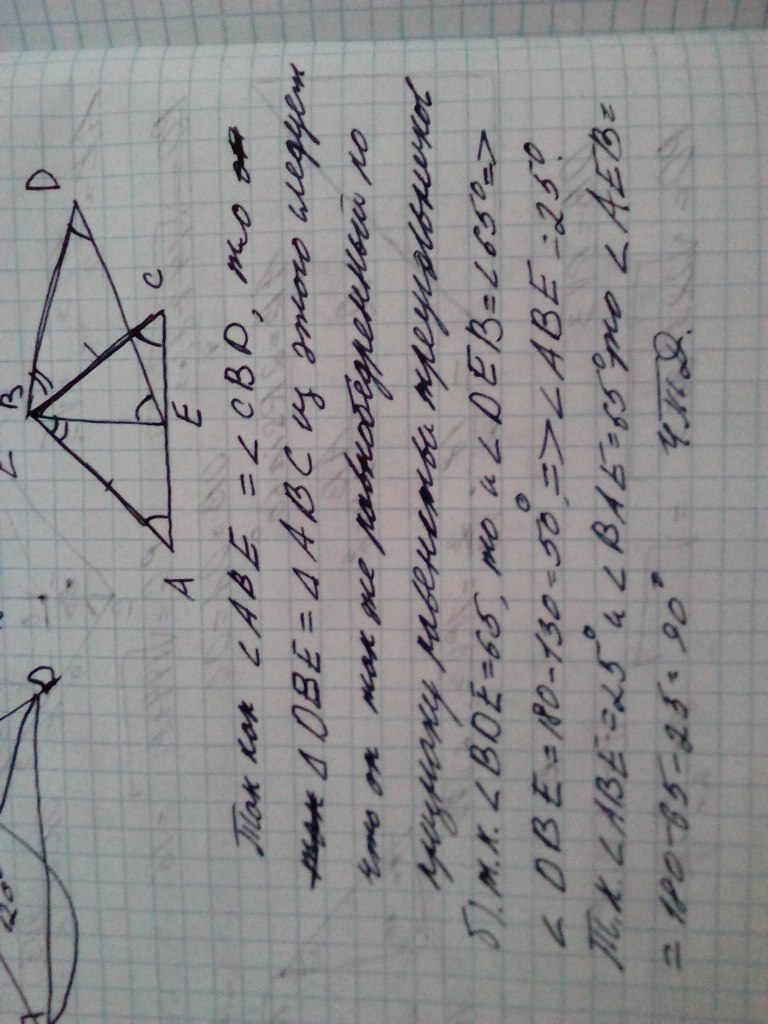 B
D
A
E
C
D
Так как ∠ABE = ∠CBD, то
ΔDBE = ΔABC из этого следует
что он так же равнобедренный по
признаку равенства треугольников
б). т.к. ∠BDE=65, то и ∠DEB=∠65° =>
∠DBE = 180-130=50°, => ∠ABE = 25°.
Т.к. ∠ABE=25° и ∠BAE=65° то ∠AEB=
= 180-65-25= 90° чтд.